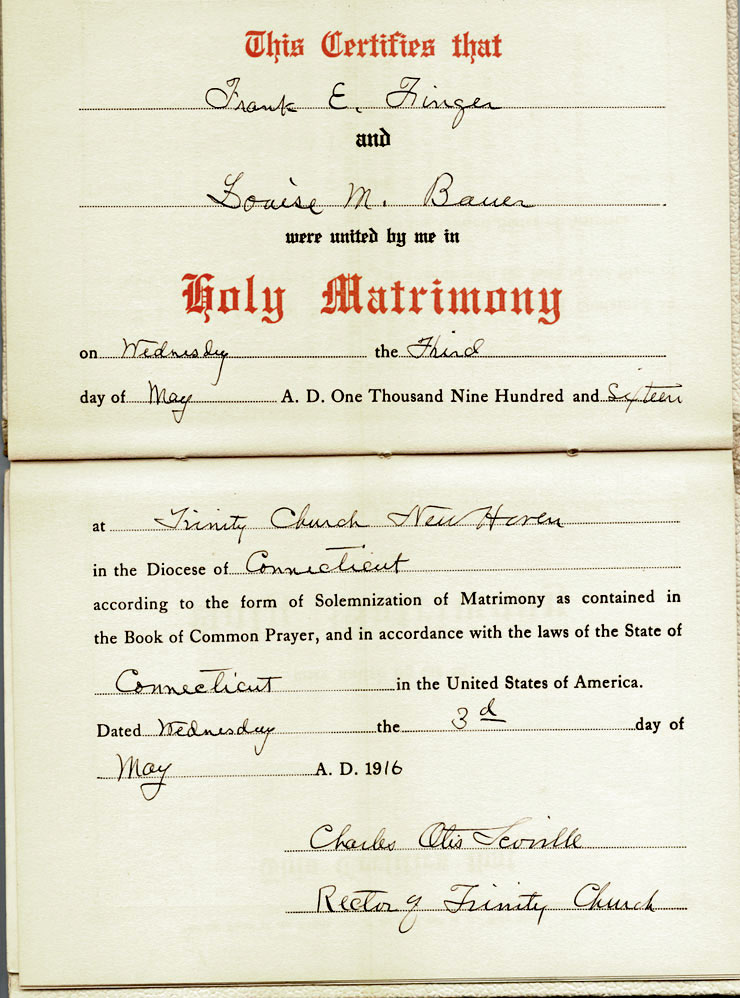 This Certifies that
Frank E. Finger
and
Louise M. Bauer
were united by me in
Holy Matrimony
on Wednesday the Third
day of May A. D. One Thousand Nine Hundred and Sixteen
at Trinity Church New Haven
in the Diocese of Connecticut
according to the form of Solemnization of Matrimony as contained in
the Book of Common Prayer, and in accordance with the laws of the State of
Connecticut in the United States of America.
Dated Wednesday the 3d day of
May A. D. 1916
Charles Otis Scoville
Rector of Trinity Church